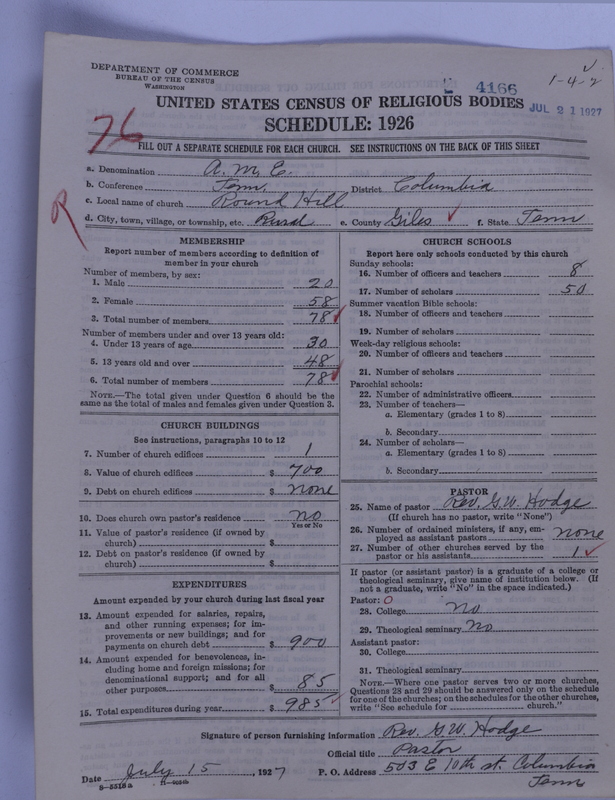 DEPARTMENT OF COMMERCE
BUREAU OF THE CENSUS
WASHINGTON
4166
1-4-2
JUL 21 1927
UNITED STATES CENSUS OF RELIGIOUS BODIES
SCHEDULE: 1926
76
FILL OUT A SEPARATE SCHEDULE FOR EACH CHURCH. SEE INSTRUCTIONS ON THE BACK OF THIS SHEET
a. Denomination A. M. E.
b. Conference Tenn. District Columbia
c. Local name of church Round Hill
R
d. City, town, village, or township, etc. Rural e. County Giles f. State Tenn
MEMBERSHIP
Report number of members according to definition of
member in your church
Number of members, by sex:
1. Male 20
2. Female 58
3. Total number of members 78
Number of members under and over 13 years old:
4. Under 13 years of age 30
5. 13 years old and over 48
6. Total number of members 78
NOTE.—The total given under Question 6 should be
same as the total of males and females given under Question 3.
CHURCH BUILDINGS
See instructions, paragraphs 10 to 12
7. Number of church edifices 1
8. Value of church edifices $ 700
9. Debt on church edifices $ none
10. Does church own pastor's residence no
Yes or No
11. Value of pastor's residence (if owned by
church) $
12. Debt on pastor's residence (if owned by
church) $
EXPENDITURES
Amount expended by your church during last fiscal year
13. Amount expended for salaries, repairs,
and other running expenses; for im-
provements or new buildings; and for
payments on church debt $ 900
14. Amount expended for benevolences, in-
cluding home and foreign missions; for
denominational support; and for all
other purposes $ 85
15. Total expenditures during year $ 985
CHURCH SCHOOLS
Report here only schools conducted by this church
Sunday schools:
16. Number of officers and teachers 8
17. Number of scholars 50
Summer vacation Bible schools:
18. Number of officers and teachers
19. Number of scholars
Week-day religious schools:
20. Number of officers and teachers
21. Number of scholars
Parochial schools:
22. Number of administrative officers
23. Number of teachers—
a. Elementary (grades 1 to 8)
b. Secondary
24. Number of scholars—
a. Elementary (grades 1 to 8)
b. Secondary
PASTOR
25. Name of pastor Rev. G. W. Hodge
(If church has no pastor, write "None")
26. Number of ordained ministers, if any, em-
ployed as assistant pastors none
27. Number of other churches served by the
pastor or his assistants 1
If pastor (or assistant pastor) is a graduate of a college or
theological seminary, give name of institution below. (If
not a graduate, write "No" in the space indicated.)
Pastor: 0
28. College no
29. Theological seminary no
Assistant pastor:
30. College
31. Theological seminary
NOTE.—Where one pastor serves two or more churches,
Questions 28 and 29 should be answered only on the schedule
for one of the churches; on the schedules for the other churches,
write "See schedule for church."
Signature of person furnishing information Rev. G. W. Hodge
Official title Pastor
Date July 15, 1927 P. O. Address 503 E 10th st. Columbia
Tenn
8-5518a